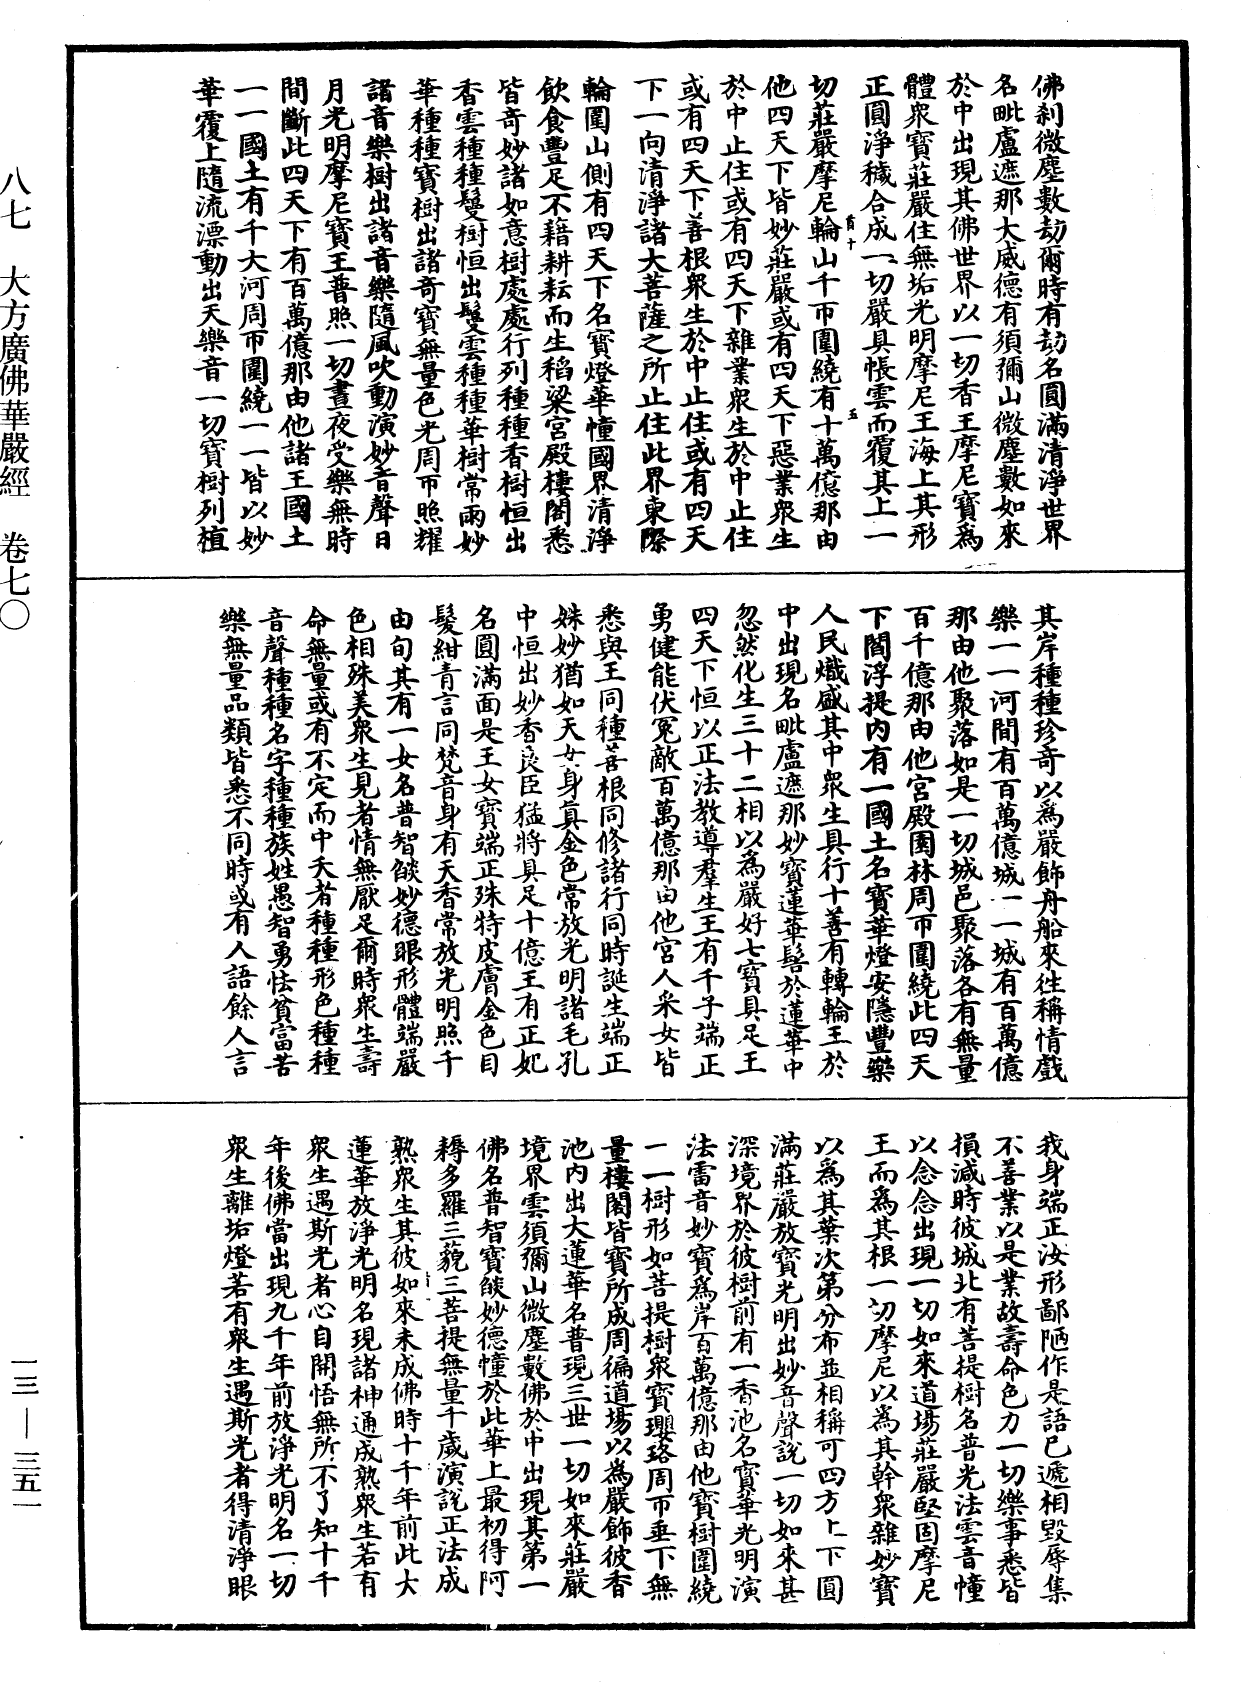 佛剎微塵數劫爾時有劫名圓滿清淨世界
名毗盧遮那大威德有須彌山微塵數如來
於中出現其佛世界以一切香王摩尼寶爲
體衆寶莊嚴住無垢光明摩尼王海上其形
正圓淨穢合成一切嚴具帳雲而覆其上一
切莊嚴摩尼輪山千帀圍繞有十萬億那由
他四天下皆妙莊嚴或有四天下惡業衆生
於中止住或有四天下雜業衆生於中止住
或有四天下善根衆生於中止住或有四天
下一向清淨諸大菩薩之所止住此界東際
輪圍山側有四天下名寶燈華幢國界清淨
飲食豐足不藉耕耘而生稻粱宮殿樓閣悉
皆奇妙諸如意樹處處行列種種香樹恒出
香雲種種鬘樹恒出鬘雲種種華樹常雨妙
華種種寶樹出諸奇寶無量色光周帀照耀
諸音樂樹出諸音樂隨風吹動演妙音聲日
月光明摩尼寶王普照一切晝夜受樂無時
間斷此四天下有百萬億那由他諸王國土
一一國土有千大河周帀圍繞一一皆以妙
華覆上隨流漂動出天樂音一切寶樹列植
其岸種種珍奇以爲嚴飾舟船來往稱情戲
樂一一河間有百萬億城一一城有百萬億
那由他聚落如是一切城邑聚落各有無量
百千億那由他宮殿園林周帀圍繞此四天
下閻浮提內有一國土名寶華燈安隱豐樂
人民熾盛其中衆生具行十善有轉輪王於
中出現名毗盧遮那妙寶蓮華髻於蓮華中
忽然化生三十二相以爲嚴好七寶具足王
四天下恒以正法教導羣生王有千子端正
勇健能伏冤敵百萬億那由他宮人采女皆
悉與王同種善根同修諸行同時誕生端正
姝妙猶如天女身真金色常放光明諸毛孔
中恒出妙香良臣猛將具足十億王有正妃
名圓滿面是王女寶端正殊特皮膚金色目
髮紺青言同梵音身有天香常放光明照千
由旬其有一女名普智燄妙德眼形體端嚴
色相殊美衆生見者情無厭足爾時衆生壽
命無量或有不定而中夭者種種形色種種
音聲種種名字種種族姓愚智勇怯貧富苦
樂無量品類皆悉不同時或有人語餘人言
我身端正汝形鄙陋作是語已遞相毀辱集
不善業以是業故壽命色力一切樂事悉皆
損減時彼城北有菩提樹名普光法雲音幢
以念念出現一切如來道場莊嚴堅固摩尼
王而爲其根一切摩尼以爲其幹衆雜妙寶
以爲其葉次第分布並相稱可四方上下圓
滿莊嚴放寶光明出妙音聲說一切如來甚
深境界於彼樹前有一香池名寶華光明演
法雷音妙寶爲岸百萬億那由他寶樹圍繞
一一樹形如菩提樹衆寶瓔珞周帀垂下無
量樓閣皆寶所成周徧道場以爲嚴飾彼香
池內出大蓮華名普現三世一切如來莊嚴
境界雲須彌山微塵數佛於中出現其第一
佛名普智寶燄妙德幢於此華上最初得阿
耨多羅三藐三菩提無量千歲演說正法成
熟衆生其彼如來未成佛時十千年前此大
蓮華放淨光明名現諸神通成熟衆生若有
衆生遇斯光者心自開悟無所不了知十千
年後佛當出現九千年前放淨光明名一切
衆生離垢燈若有衆生遇斯光者得清淨眼
八七 大方廣佛華嚴經 卷七〇
一三—三五一